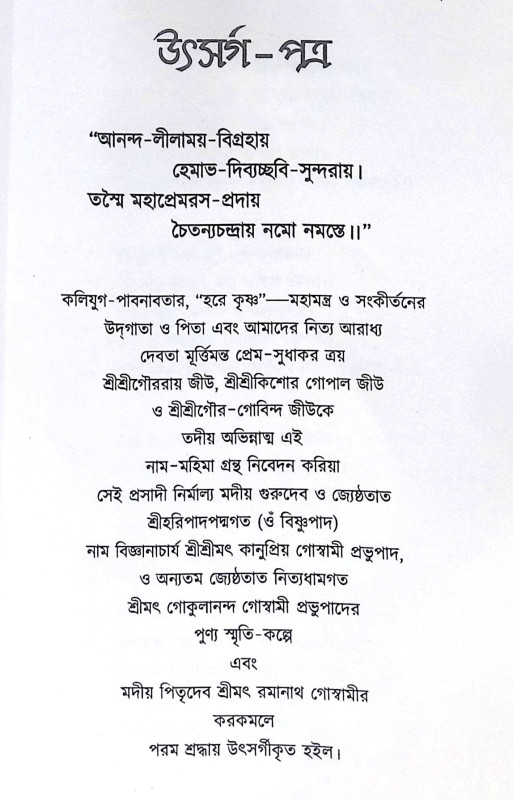 উৎসর্গ-পত্র
“আনন্দ-লীলাময়-বিগ্রহায়
হেমাভ-দিব্যচ্ছবি-সুন্দরায়।
তস্মৈ মহাপ্রেমরস-প্রদায়
চৈতন্যচন্দ্রায় নমো নমস্তে।।”
কলিযুগ-পাবনাবতার, “হরে কৃষ্ণ”—মহামন্ত্র ও সংকীর্তনের
উদ্‌গাতা ও পিতা এবং আমাদের নিত্য আরাধ্য
দেবতা মূর্ত্তিমন্ত প্রেম-সুধাকর ত্রয়
শ্রীশ্রীগৌররায় জীউ, শ্রীশ্রীকিশোর গোপাল জীউ
ও শ্রীশ্রীগৌর-গোবিন্দ জীউকে
তদীয় অভিন্নাত্ম এই
নাম-মহিমা গ্রন্থ নিবেদন করিয়া
সেই প্রসাদী নির্মাল্য মদীয় গুরুদেব ও জ্যেষ্ঠতাত
শ্রীহরিপাদপদ্মগত (ওঁ বিষ্ণুপাদ)
নাম বিজ্ঞানাচার্য শ্রীশ্রীমৎ কানুপ্রিয় গোস্বামী প্রভুপাদ,
ও অন্যতম জ্যেষ্ঠতাত নিত্যধামগত
শ্রীমৎ গোকুলানন্দ গোস্বামী প্রভুপাদের
পুণ্য স্মৃতি-কল্পে
এবং
মদীয় পিতৃদেব শ্রীমৎ রমানাথ গোস্বামীর
করকমলে
পরম শ্রদ্ধায় উৎসর্গীকৃত হইল।